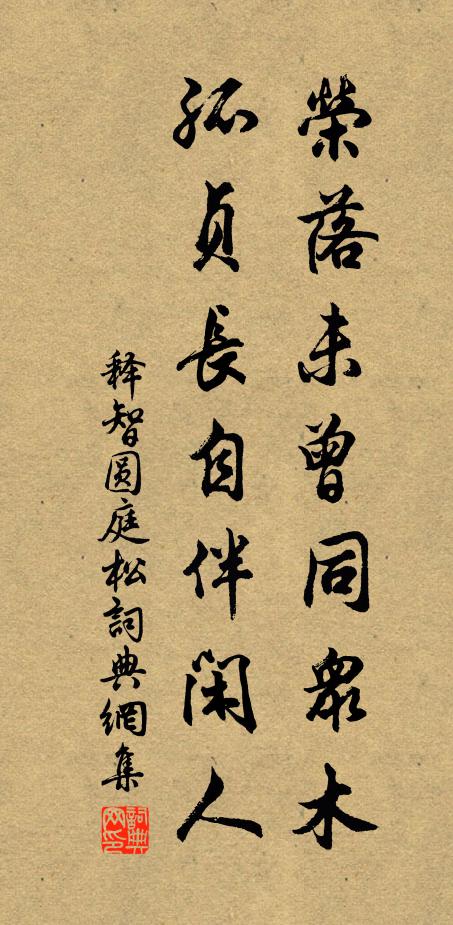 榮落未曾同衆木
孤貞長自伴閑人
释智圓庭松詞典網集
詞典网印